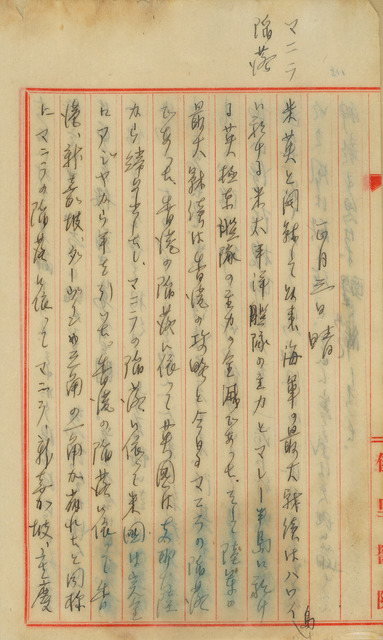 マニラ
陥落
正月三日 晴
米英と開戦して以来海軍の最大戦績はハワイ島
に於ける米太平洋艦隊の主力とマレー半島に於け
る英極東艦隊の主力の全滅であった、そして陸軍の
最大戦績は香港の攻略と今日のマニラの陥落
であらう、香港の陥落に依って英国は支那大陸
から締出され、マニラの陥落に依って米国は完全
にアジヤから手を引いた、香港の陥落に依って香
港、新嘉坡、の三角の一角が崩れたと同様
にマニラの陥落に依ってマニラ、新嘉坡、重慶